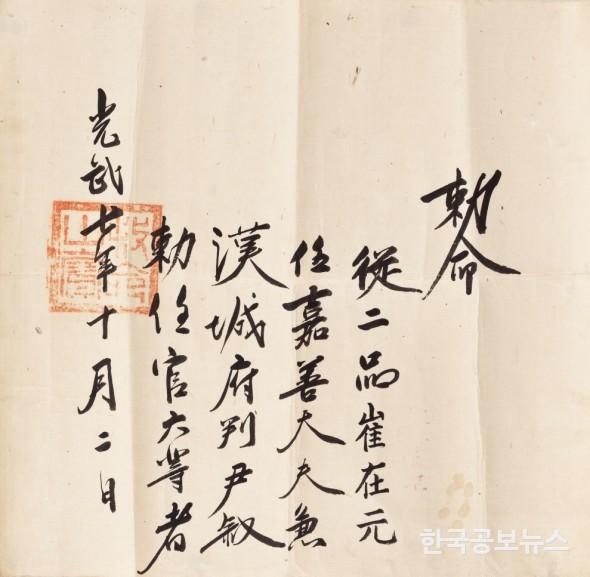 勅命
從二品崔在元
任嘉善大夫兼
漢城府判尹敍
勅任官六等者
光武七年十月二日
한국공보뉴스